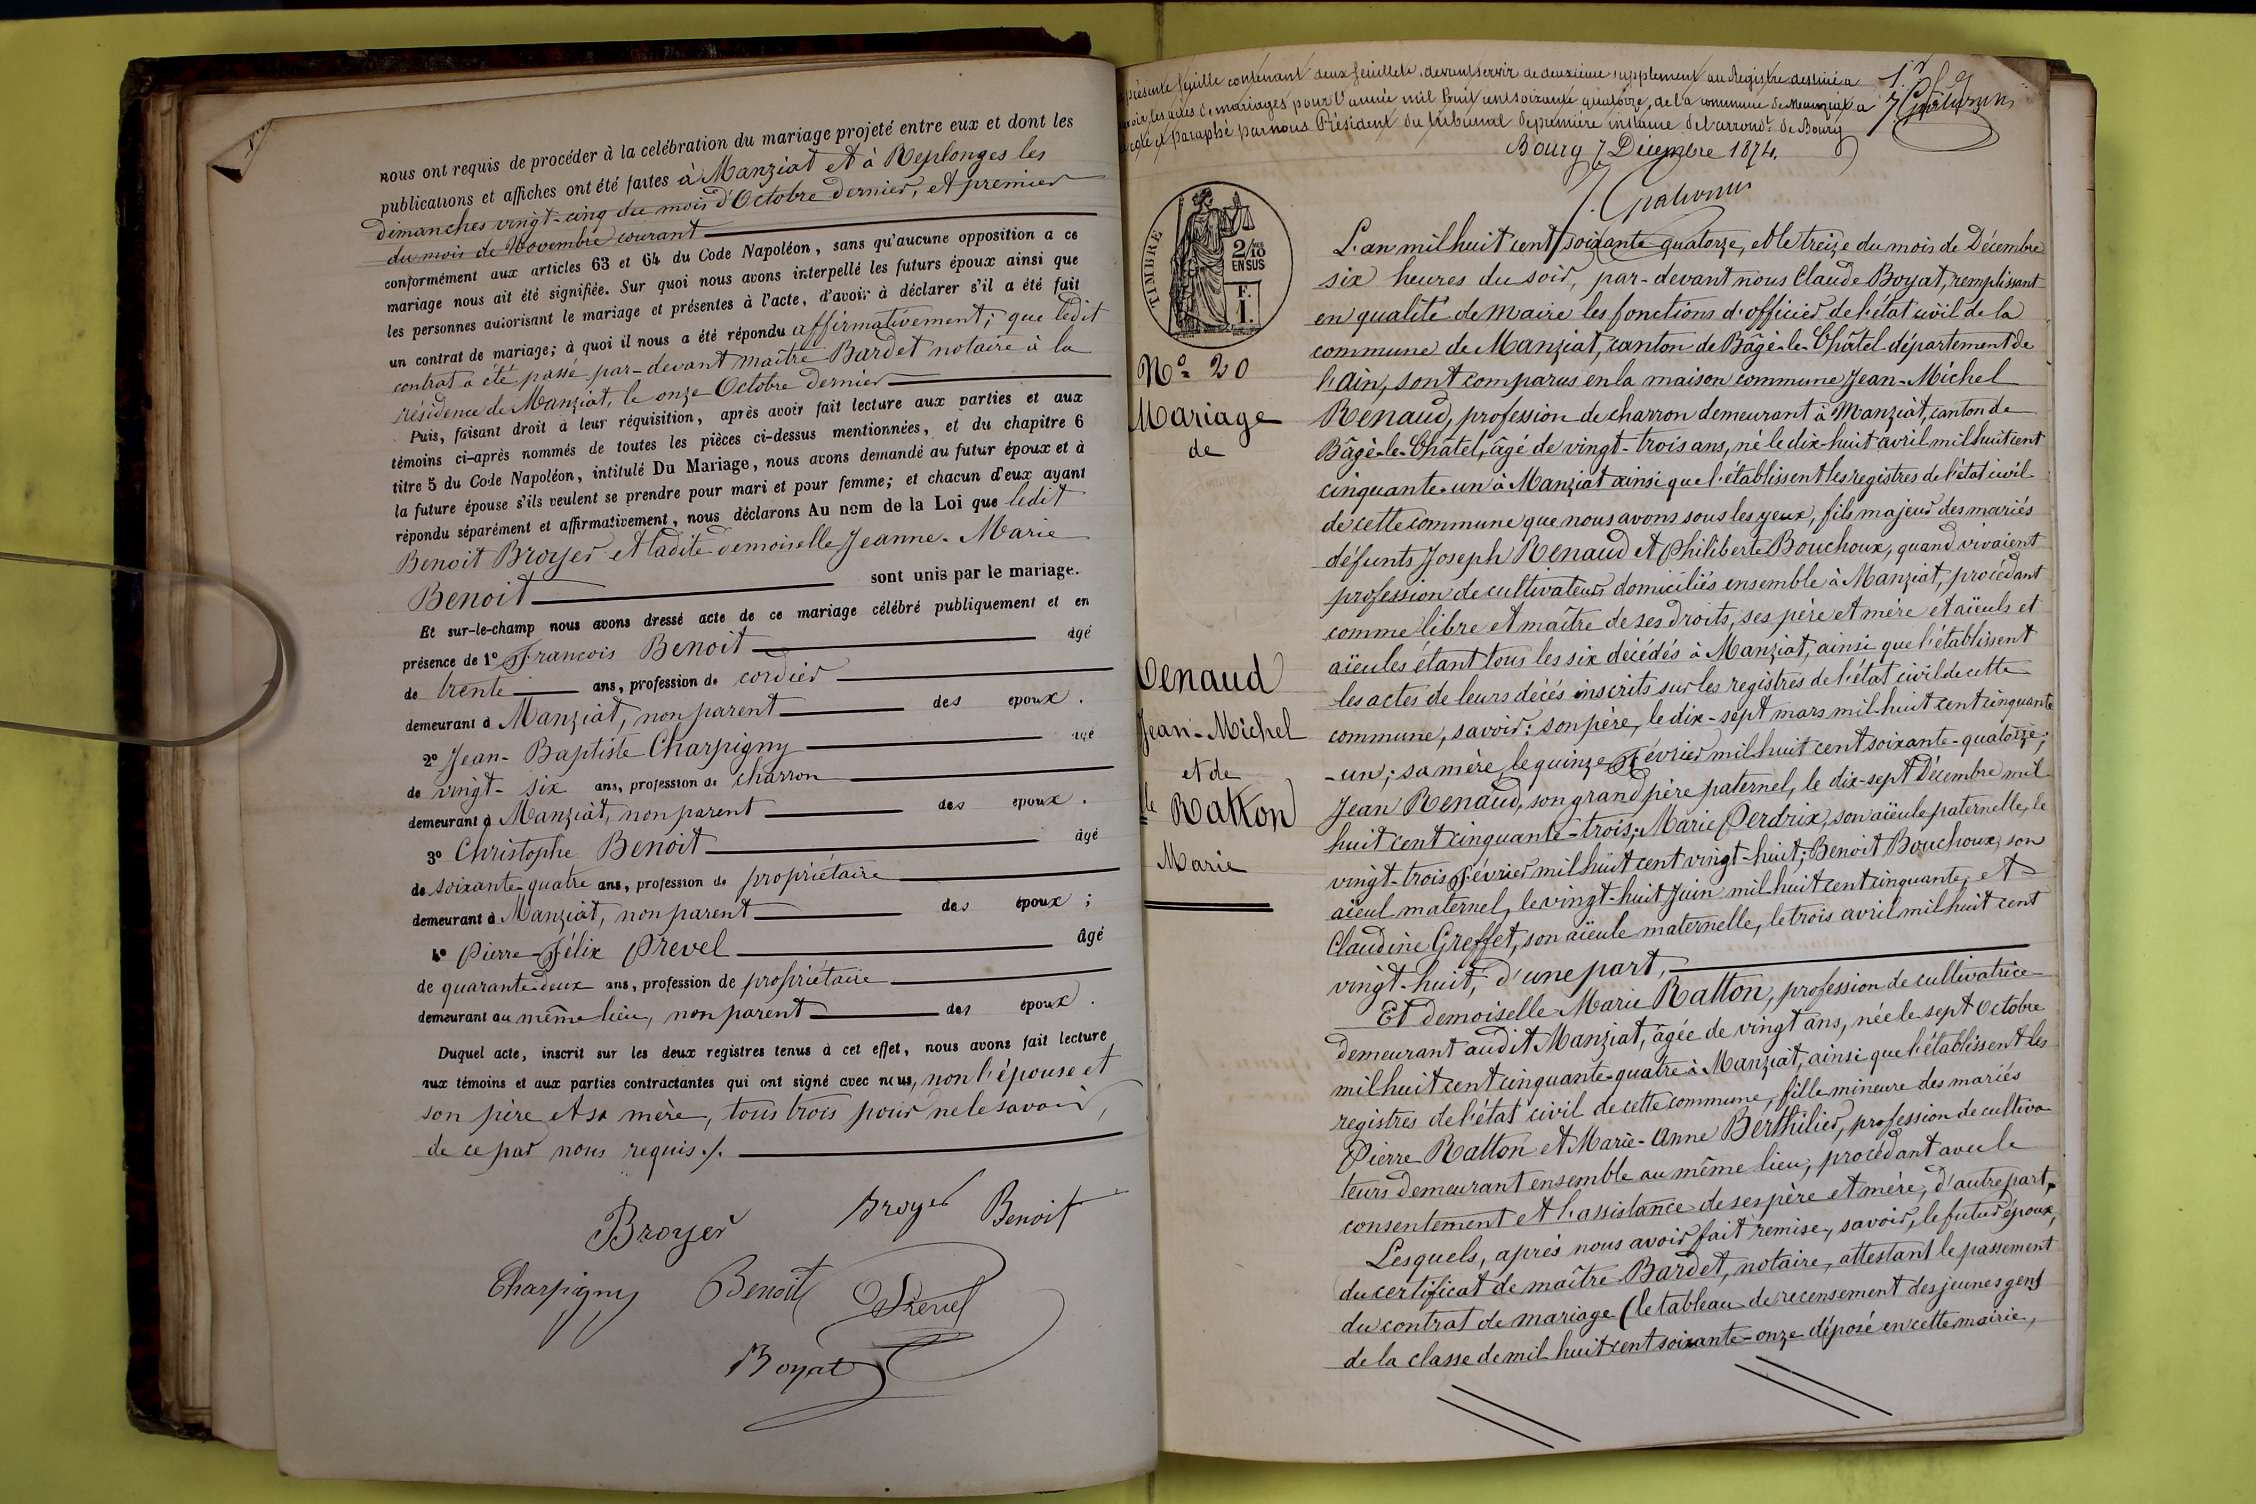 nous ont requis de procéder à la celébration du mariage projeté entre eux et dont les
publications et affiches ont été faites à Manziat et à Replonges les
dimanches vingt-cinq du mois d'Octobre dernier, et premier
du mois de Novembre courant
conformément aux articles 63 et 64 du Code Napoléon, sans qu'aucune opposition a ce
mariage nous ait été signifiée. Sur quoi nous avons interpellé les futurs époux ainsi que
les personnes autorisant le mariage et présentes à l'acte, d'avoir à déclarer s'il a été fait
un contrat de mariage; à quoi il nous a été répondu affirmativement; que ledit
contrat a été passé par-devant maître Bardet notaire à la
résidence de Manziat, le onze Octobre dernier
Puis, faisant droit à leur réquisition, après avoir fait lecture aux parties et aux
témoins ci-après nommés de toutes les pièces ci-dessus mentionnées, et du chapitre 6
titre 5 du Code Napoléon, intitulé Du Mariage, nous avons demandé au futur époux et à
la future épouse s'ils veulent se prendre pour mari et pour femme; et chacun d'eux ayant
répondu séparément et affirmativement, nous déclarons Au nom de la Loi que ledit
Benoit Broyer et ladite demoiselle Jeanne-Marie
Benoit sont unis par le mariage.
Et sur-le-champ nous avons dressé acte de ce mariage célébré publiquement et en
présence de 1º François Benoit âgé
de trente ans, profession de cordier
demeurant à Manziat, non parent des époux.
2º Jean-Baptiste Charpigny âgé
de vingt-six ans, profession de charron
demeurant à Manziat, non parent des époux.
3º Christophe Benoit âgé
de soixante-quatre ans, profession de propriétaire
demeurant à Manziat, non parent des époux;
4º Pierre-Félix Prevel âgé
de quarante-deux ans, profession de propriétaire
demeurant au même lieu, non parent des époux.
Duquel acte, inscrit sur les deux registres tenus à cet effet, nous avons fait lecture
aux témoins et aux parties contractantes qui ont signé avec nous, non l'épouse et
son père et sa mère, tous trois pour ne le savoir,
de ce par nous requis./.
Broyer Broyer Benoit
Charpigny Benoit Prevel
Boyat
présente feuille contenant deux feuillets, devant servir de deuxième supplément au Registre destiné a
les actes de mariages pour l'année mil huit cent soixante quatorze, de la commune de Manziat a
coté et paraphé par nous Président du tribunal de première instance de l'arrondt. de Bourg
Bourg 7 Décembre 1874.
TIMBRE
2/10 EN SUS
F.
1.
Nº 20
Mariage
de
Renaud
Jean-Michel
et de
lle Ratton
Marie
L'an mil huit cent soixante quatorze, et le treize du mois de Décembre
six heures du soir, par-devant nous Claude Boyat, remplissant
en qualité de Maire les fonctions d'officier de l'état civil de la
commune de Manziat, canton de Bâgé-le-Châtel département de
l'Ain, sont comparus en la maison commune Jean-Michel
Renaud, profession de charron demeurant à Manziat, canton de
Bâgé-le-Châtel, âgé de vingt-trois ans, né le dix-huit avril mil huit cent
cinquante-un à Manziat ainsi que l'établissent les registres de l'état civil
de cette commune que nous avons sous les yeux, fils majeur des mariés
défunts Joseph Renaud et Philiberte Bouchoux, quand vivaient
profession de cultivateurs domiciliés ensemble à Manziat, procédant
comme libre et maître de ses droits, ses père et mère et aïeuls et
aïeules étant tous les six décédés à Manziat, ainsi que l'établissent
les actes de leurs décès inscrits sur les registres de l'état civil de cette
commune, savoir: son père, le dix-sept mars mil huit cent cinquante
-un; sa mère le quinze Février mil huit cent soixante-quatorze;
Jean Renaud, son grand père paternel, le dix-sept Décembre mil
huit cent cinquante-trois; Marie Perdrix, son aïeule paternelle, le
vingt-trois Février mil huit cent vingt-huit; Benoit Bouchoux, son
aïeul maternel, le vingt-huit Juin mil huit cent cinquante, et
Claudine Greffet, son aïeule maternelle, le trois avril mil huit cent
vingt-huit, d'une part,
Et demoiselle Marie Ratton, profession de cultivatrice
demeurant audit Manziat, âgée de vingt ans, née le sept Octobre
mil huit cent cinquante-quatre à Manziat, ainsi que l'établissent les
registres de l'état civil de cette commune, fille mineure des mariés
Pierre Ratton et Marie-Anne Berthilier, profession de cultiva
teurs demeurant ensemble au même lieu, procédant avec le
consentement et l'assistance de ses père et mère, d'autre part,
Lesquels, après nous avoir fait remise, savoir, le futur époux,
du certificat de maître Bardet, notaire, attestant le passement
du contrat de mariage (le tableau de recensement des jeunes gens
de la classe de mil huit cent soixante-onze déposé en cette mairie,